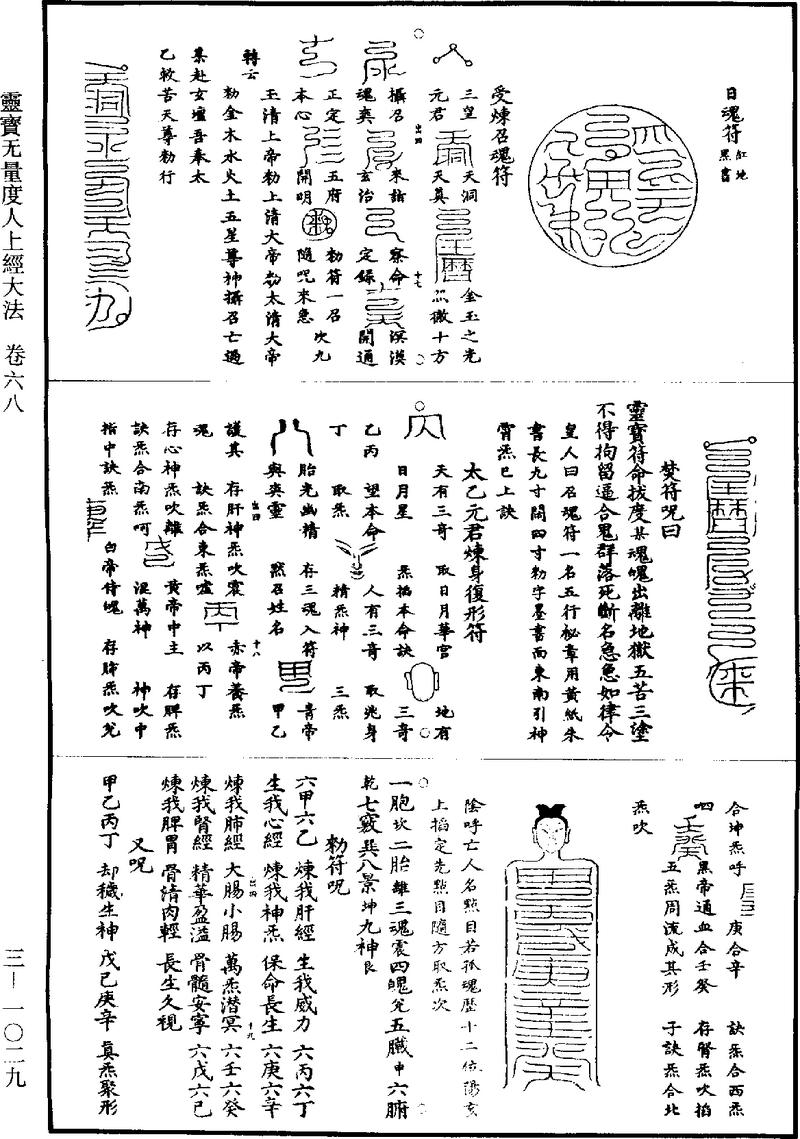 日魂符 紅地黑書
受煉召魂符
三皇 天洞 金玉之光
元君 天真 照徹十方
攝召 來詣 察命 溟漠
魂爽 玄治 定錄 開通
正定 五府 勑符一召 次九
本心 開明 隨呪來急
玉清上帝勑上清大帝勑太清大帝
轉云
勑金木水火土五星尊神攝召亡過
某赴玄壇吾奉太
乙救苦天尊勑行
焚符呪曰
靈寶符命拔度某魂魄出離地獄五苦三塗
不得拘留逼合鬼群落死斷名急急如律令
皇人曰召魂符一名五行祕章用黃紙朱
書長九寸闊四寸勑字墨書面東南引神
霄炁巳上訣
太乙元君煉身復形符
天有三奇 取日月華宮 地有
日月星 炁掐本命訣 三奇
乙丙 望本命 人有三奇 取兆身
丁 取炁 精炁神 三炁
胎光幽精 存三魂入符 青帝
與爽靈 黙召姓名 甲乙
護其 存肝神炁吹震 赤帝養炁
魂 訣炁合東炁噓 以丙丁
存心神炁吹離 黃帝中主 存脾炁
訣炁合南炁呵 混萬神 神吹中
指中訣炁 白帝侍魄 存肺炁吹兌
合坤炁呼 庚合辛 訣炁合西炁
呬 黑帝通血合壬癸 存腎炁吹掐
五炁周流成其形 子訣炁合北
炁吹
陰呼亡人名黙目若孤魂歷十二位陽玄
上掐定先黙目隨方取炁次
一胞坎二胎離三魂震四魄兌五臟中六腑
乾七竅巽八景坤九神艮
勑符呪
六甲六乙 煉我肝經 生我威力 六丙六丁
生我心經 煉我神炁 保命長生 六庚六辛
煉我肺經 大腸小腸 萬炁潛冥 六壬六癸
煉我腎經 精華盈溢 骨髓安寧 六戊六己
煉我脾胃 骨清肉輕 長生久視
又呪
甲乙丙丁 却穢生神 戊己庚辛 真炁聚形
靈寶无量度人上經大法 卷六八
三-一〇二九